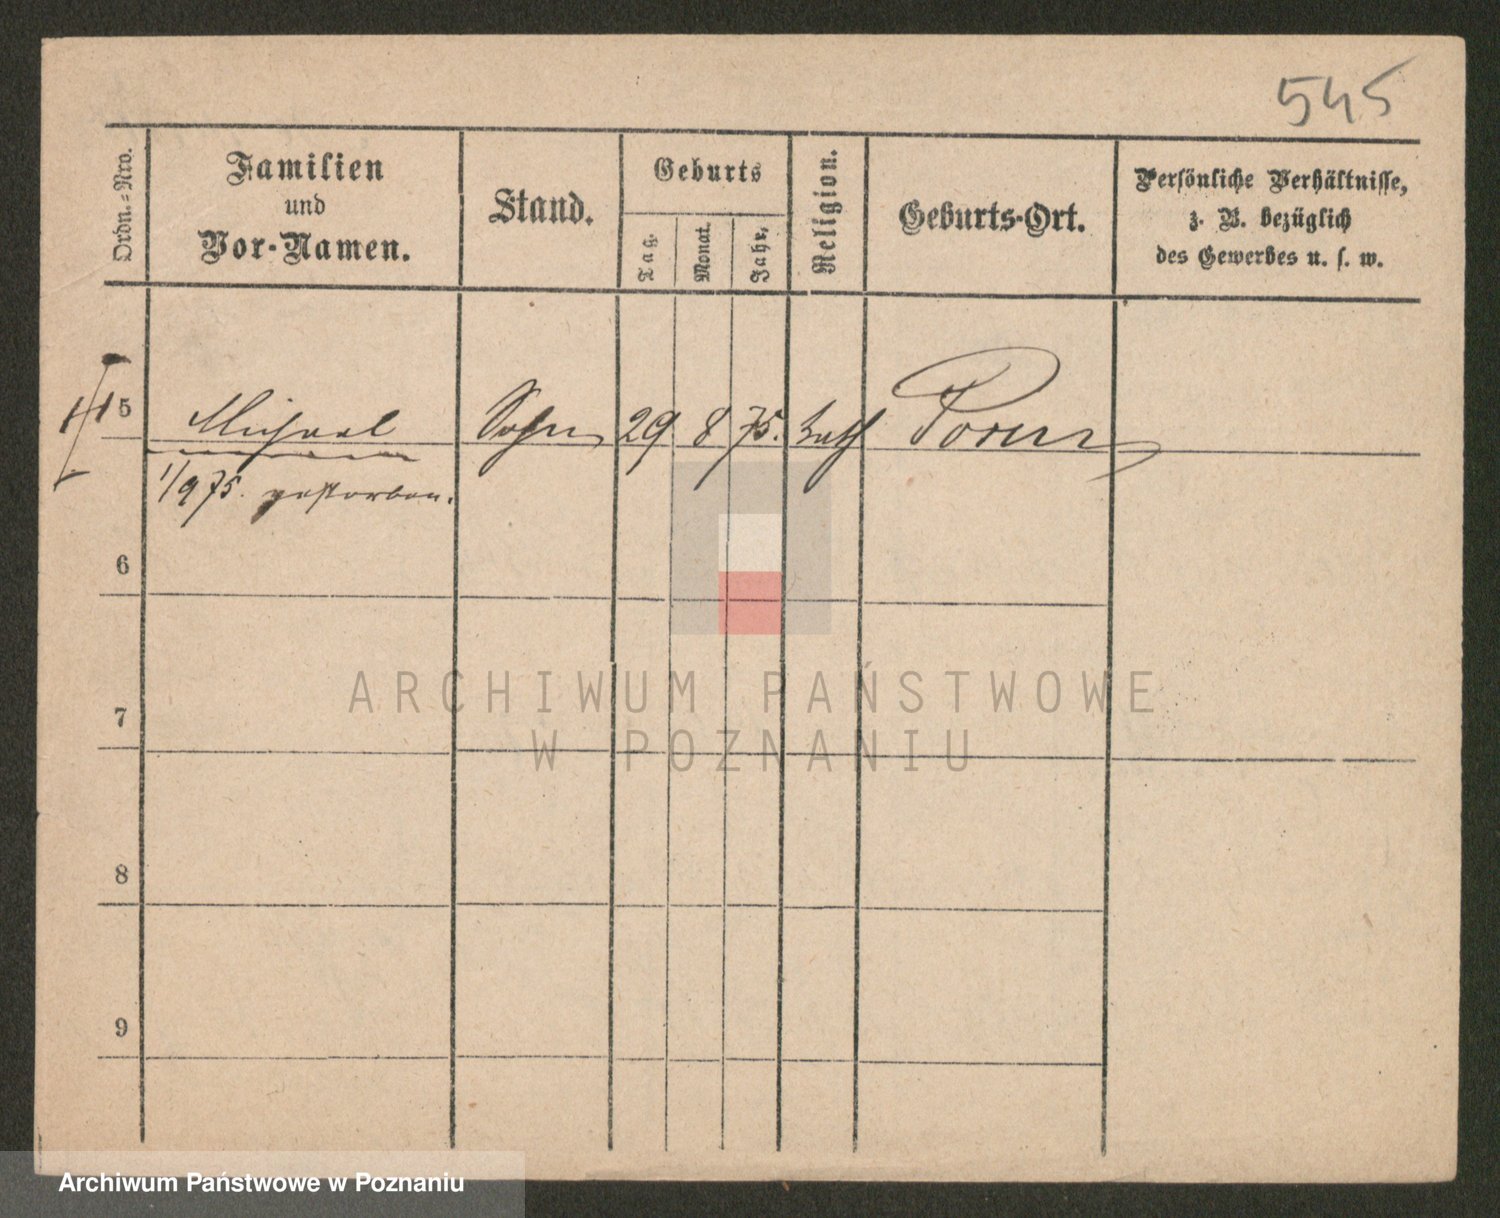 545
Ordn.-Nro.
Familien
und
Vor-Namen.
Stand.
Geburts
Tag.
Monat.
Jahr.
Religion.
Geburts-Ort.
Persönliche Verhältnisse,
z. B. bezüglich
des Gewerbes u. s. w.
5 Michael Sohn 29 8 75. kath Posen
1/9 75. gestorben.
6
7
8
9
ARCHIWUM PAŃSTWOWE
W POZNANIU
Archiwum Państwowe w Poznaniu